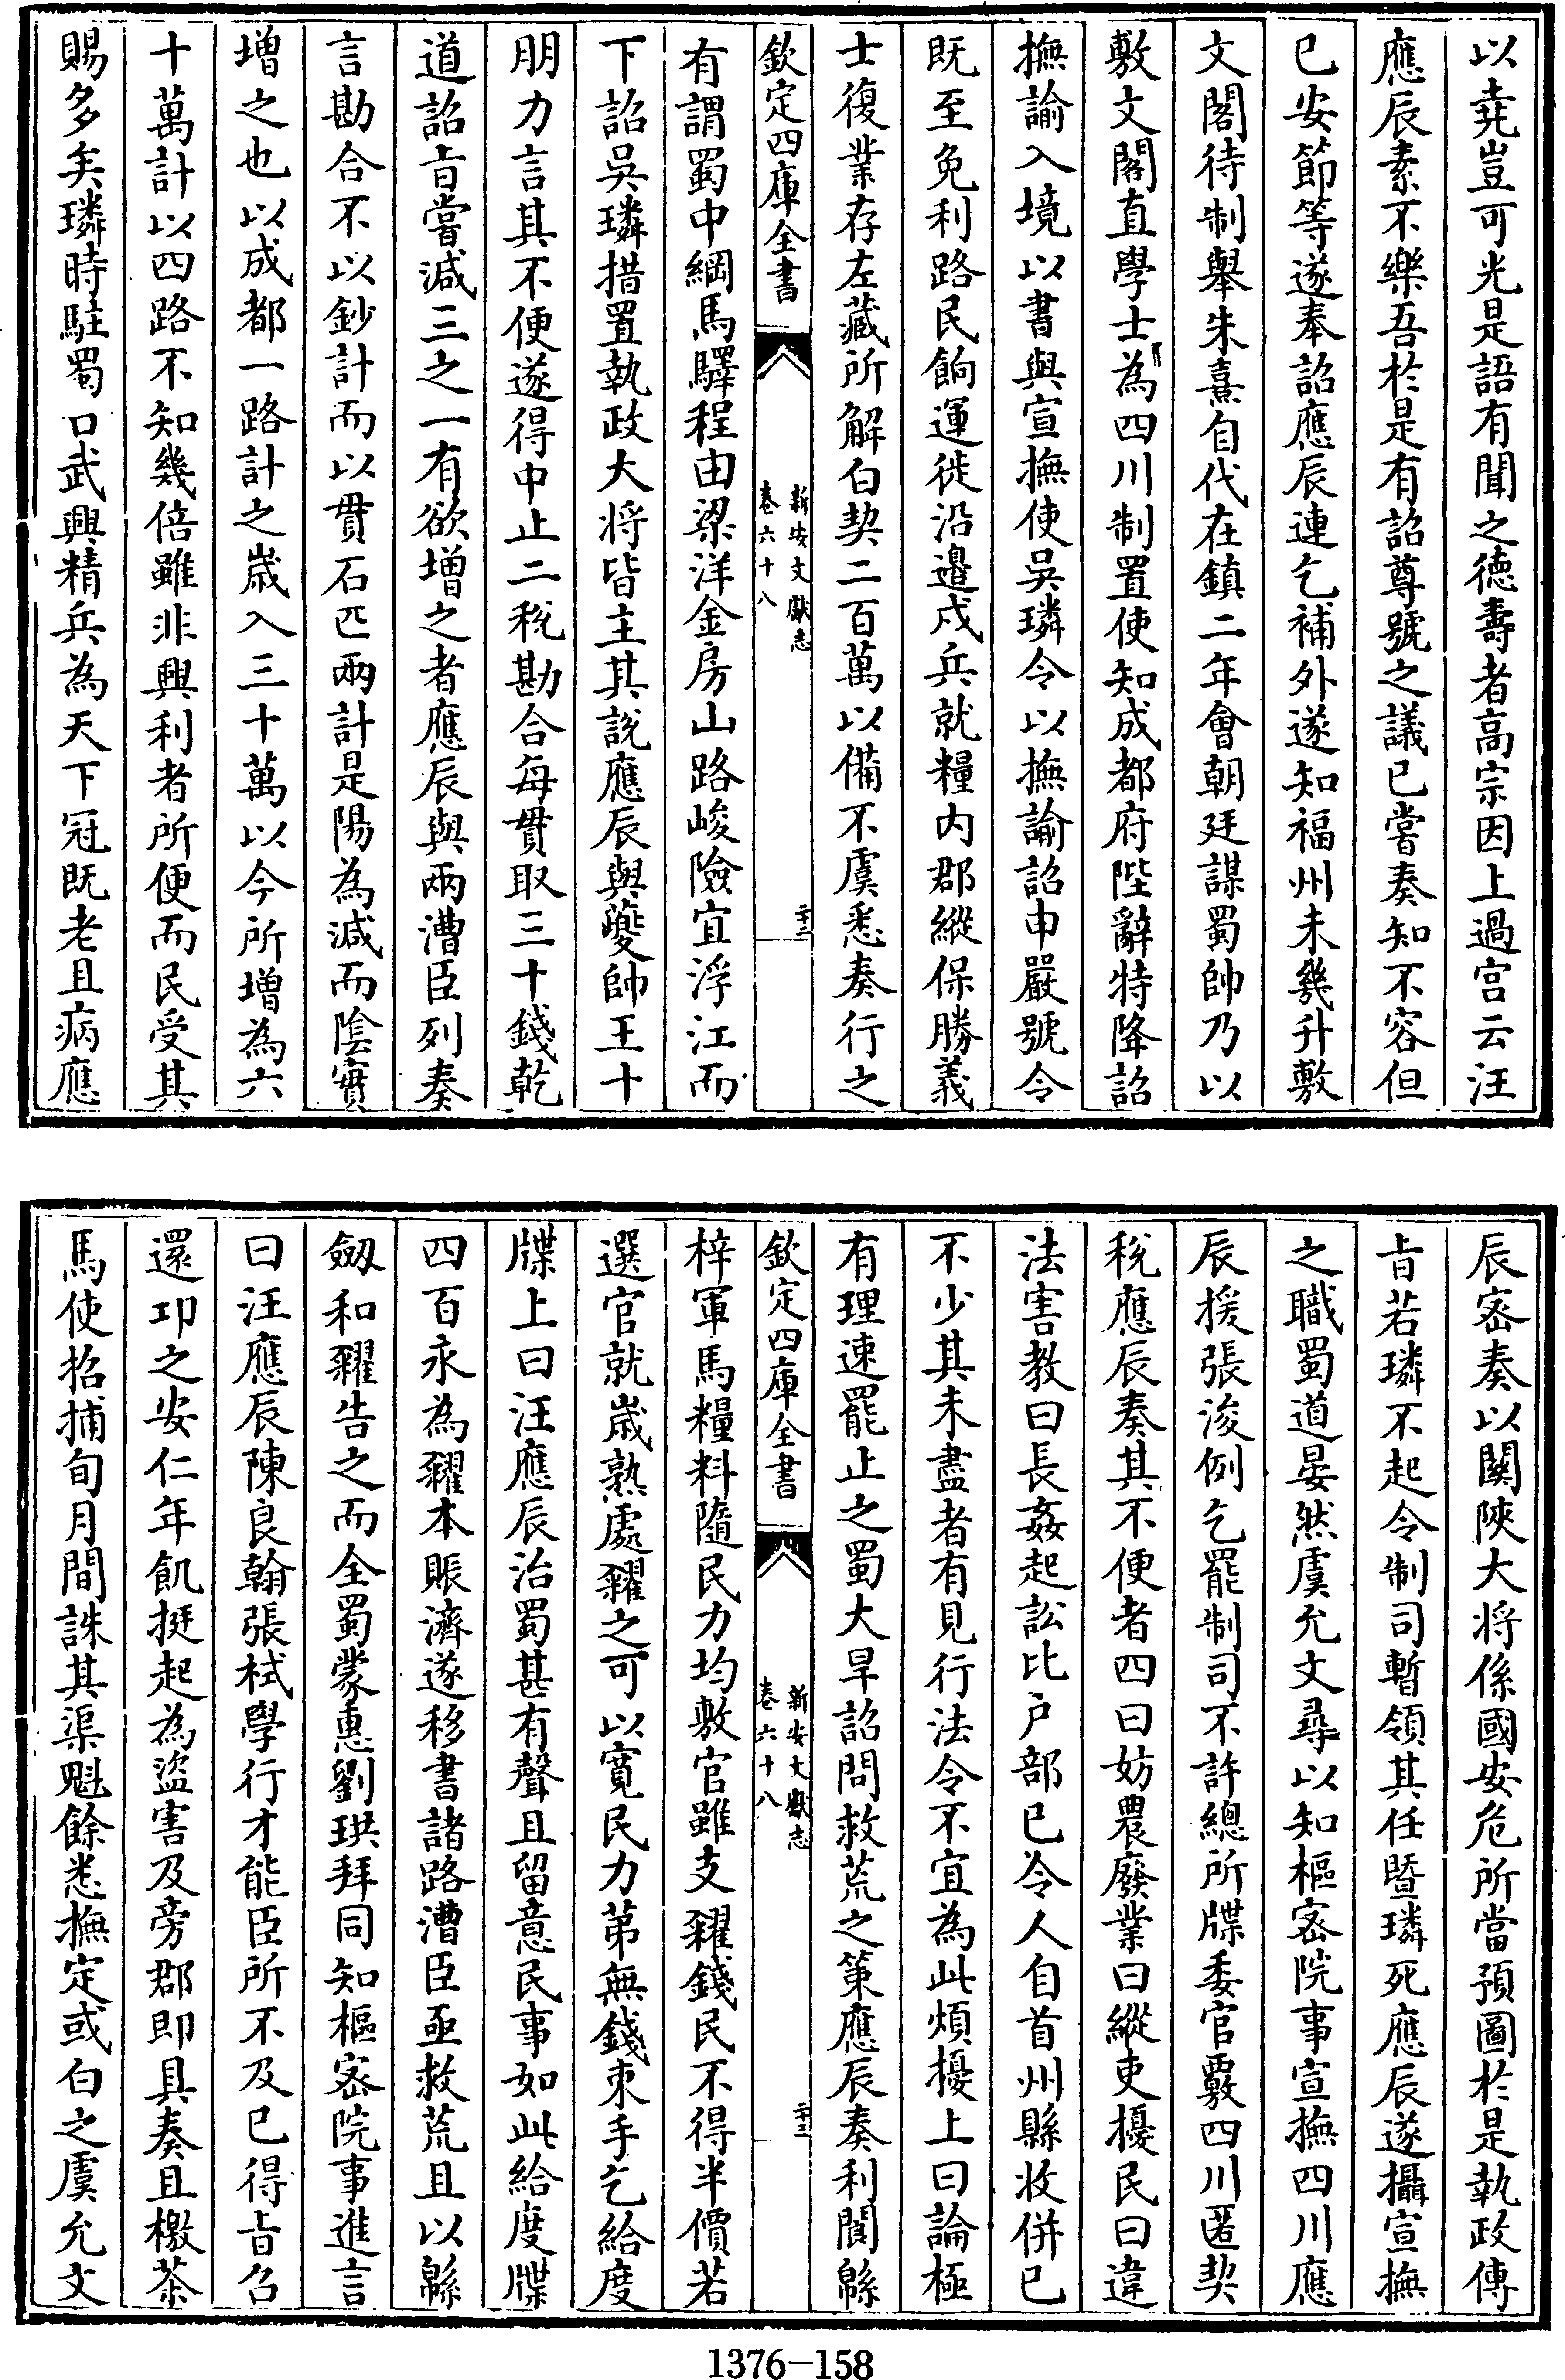 以堯豈可光是語有聞之德壽者高宗因上過宮云汪
應辰素不樂吾於是有詔尊號之議已嘗奏知不容但
已安節等遂奉詔應辰連乞補外遂知福州未幾升敷
文閣待制舉朱熹自代在鎮二年會朝廷謀蜀帥乃以
敷文閣直學士為四川制置使知成都府陛辭特降詔
撫諭入境以書與宣撫使吳璘令以撫諭詔申嚴號令
既至免利路民餉運徙沿邊戍兵就糧内郡縱保勝義
士復業存左藏所解白契二百萬以備不虞悉奏行之
欽定四庫全書
新安文獻志
卷六十八
二十二
有謂蜀中綱馬驛程由梁洋金房山路峻險宜浮江而
下詔吳璘措置執政大將皆主其說應辰與夔帥王十
朋力言其不便遂得中止二税勘合每貫取三十錢乾
道詔旨嘗減三之一有欲增之者應辰與兩漕臣列奏
言勘合不以鈔計而以貫石匹兩計是陽為減而陰實
増之也以成都一路計之歲入三十萬以今所増為六
十萬計以四路不知幾倍雖非興利者所便而民受其
賜多矣璘時駐蜀口武興精兵為天下冠既老且病應
辰宻奏以關陝大將係國安危所當預圖於是執政傳
旨若璘不起令制司暫領其任暨璘死應辰遂攝宣撫
之職蜀道晏然虞允文尋以知樞宻院事宣撫四川應
辰援張浚例乞罷制司不許總所牒委官覈四川匿契
税應辰奏其不便者四曰妨農廢業曰縱吏擾民曰違
法害教曰長姦起訟比户部已令人自首州縣收併已
不少其未盡者有見行法令不宜為此煩擾上曰論極
有理速罷止之蜀大旱詔問救荒之策應辰奏利閬緜
欽定四庫全書
新安文獻志
卷六十八
二十三
梓軍馬糧料隨民力均敷官雖支糴錢民不得半價若
選官就歲熟處糴之可以寛民力第無錢束手乞給度
牒上曰汪應辰治蜀甚有聲且留意民事如此給度牒
四百永為糴本賑濟遂移書諸路漕臣亟救荒且以緜
劔和糴告之而全蜀蒙惠劉珙拜同知樞宻院事進言
曰汪應辰陳良翰張栻學行才能臣所不及已得旨召
還邛之安仁年飢挺起為盜害及旁郡即具奏且檄茶
馬使招捕旬月間誅其渠魁餘悉撫定或白之虞允文
1376-158